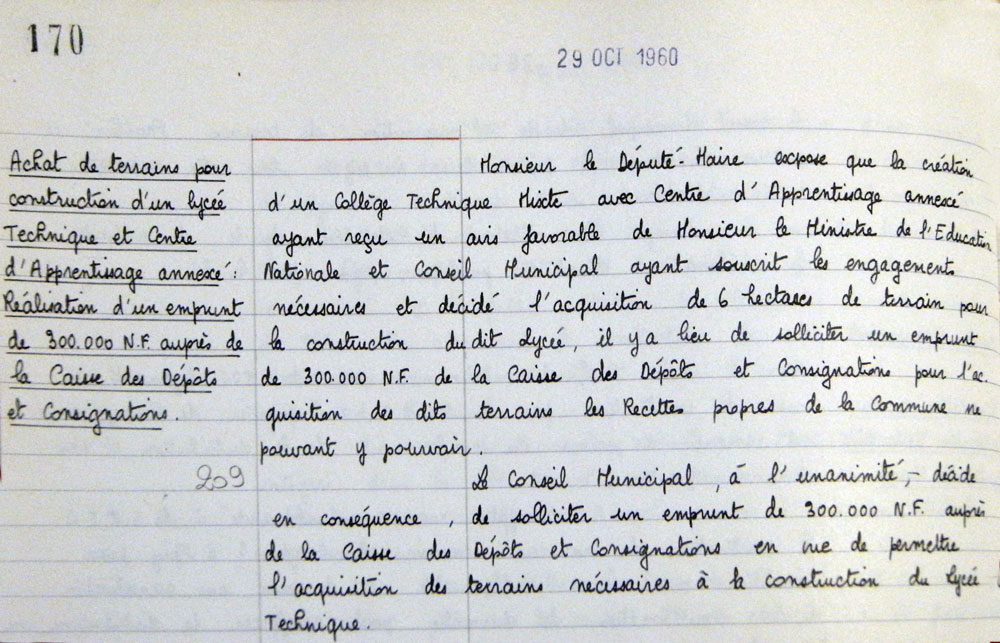 170
29 OCT 1960
Achat de terrains pour
construction d'un lycée
Technique et Centre
d'Apprentissage annexé :
Réalisation d'un emprunt
de 300.000 N.F. auprès de
la Caisse des Dépôts
et Consignations.
209
Monsieur le Député-Maire expose que la création
d'un Collège Technique Mixte avec Centre d'Apprentissage annexé
ayant reçu un avis favorable de Monsieur le Ministre de l'Education
Nationale et Conseil Municipal ayant souscrit les engagements
nécessaires et décidé l'acquisition de 6 hectares de terrain pour
la construction du dit Lycée, il y a lieu de solliciter un emprunt
de 300.000 N.F. de la Caisse des Dépôts et Consignations pour l'ac-
quisition des dits terrains les Recettes propres de la Commune ne
pouvant y pourvoir.
Le Conseil Municipal, à l'unanimité, - décide
en conséquence, de solliciter un emprunt de 300.000 N.F. auprès
de la Caisse des Dépôts et Consignations en vue de permettre
l'acquisition des terrains nécessaires à la construction du lycée
Technique.